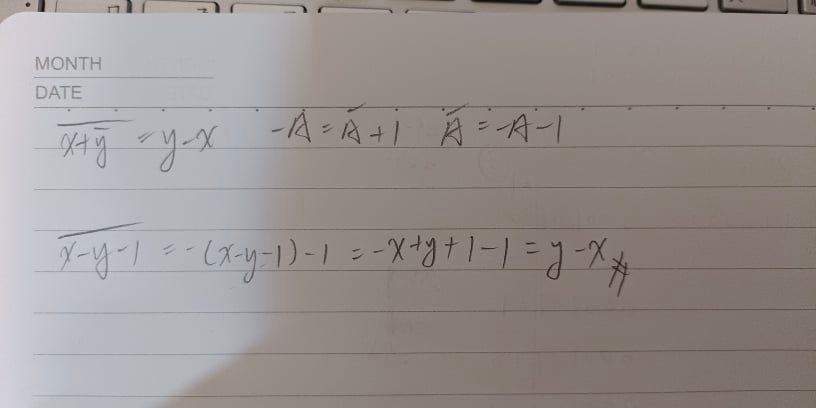 MONTH
DATE
x+ȳ̅ = y-x -A = Ā+1 Ā = -A-1
x-y-1̅ = -(x-y-1)-1 = -x+y+1-1 = y-x #